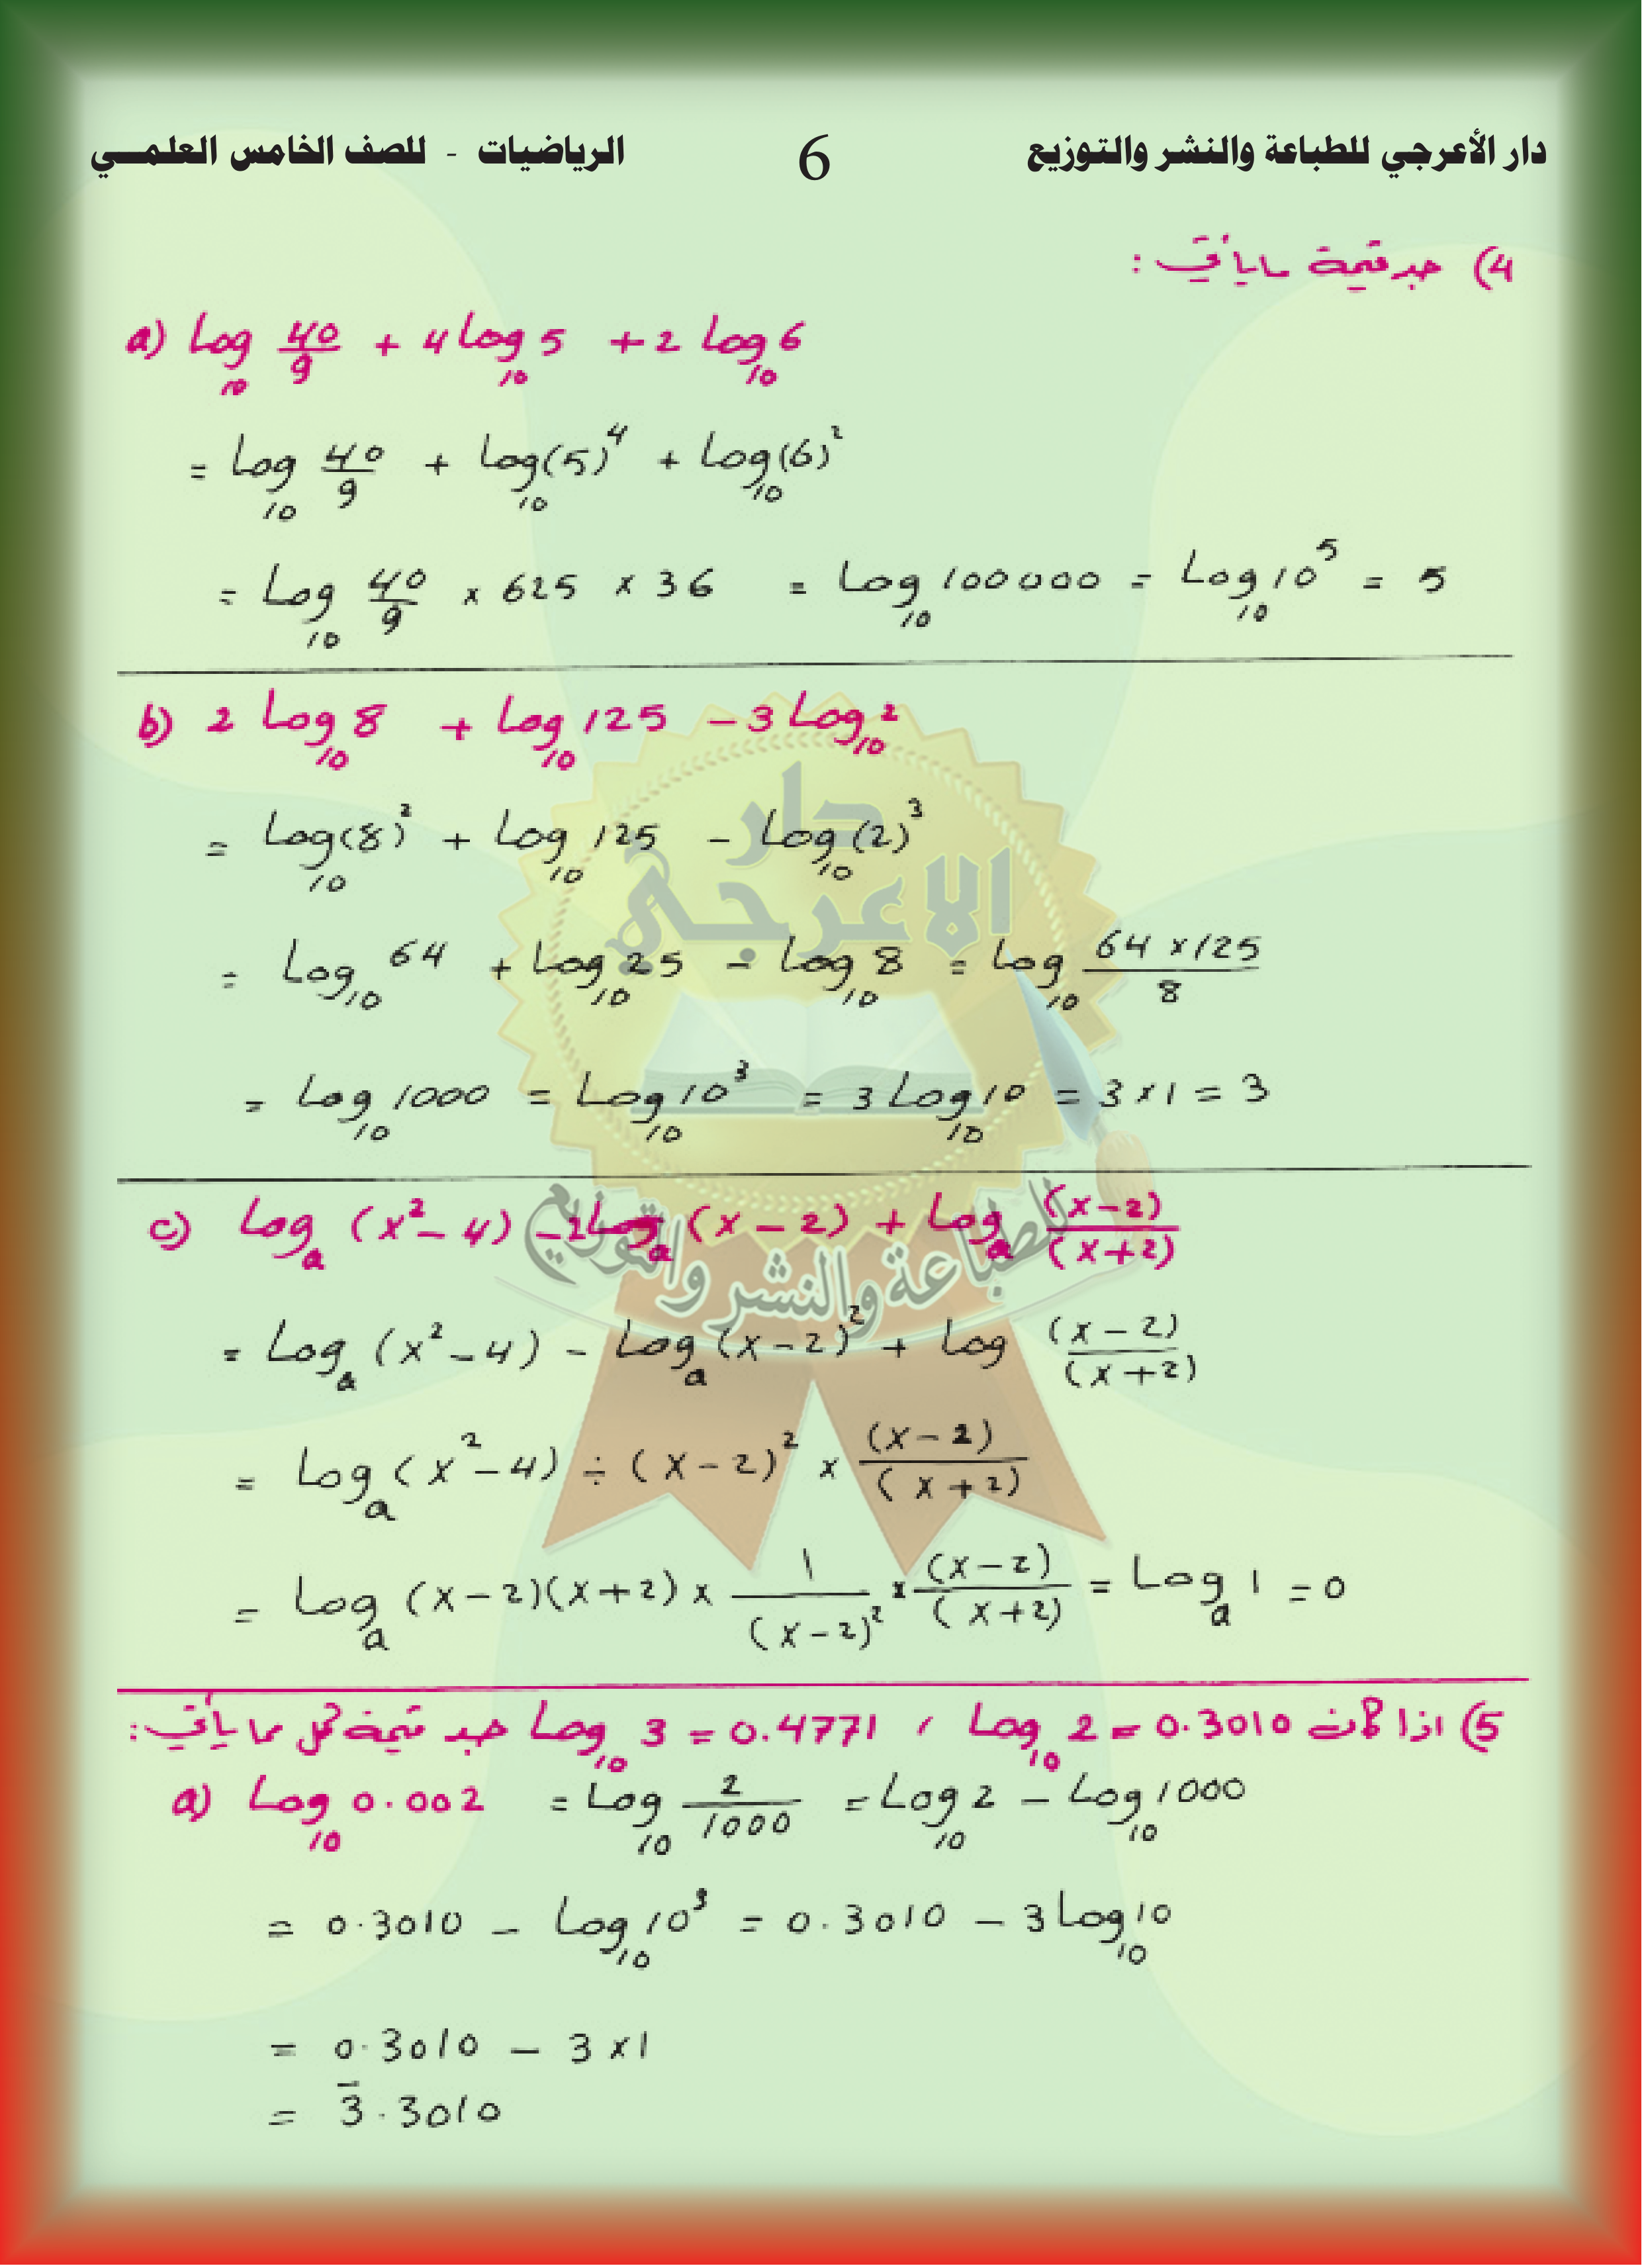 دار الأعرجي للطباعة والنشر والتوزيع 6 الرياضيات - للصف الخامس العلمــي
4) جد قيمة ما يأتي :
a) Log₁₀ 40/9 + 4 Log₁₀ 5 + 2 Log₁₀ 6
= Log₁₀ 40/9 + Log₁₀ (5)⁴ + Log₁₀ (6)²
= Log₁₀ 40/9 × 625 × 36 = Log₁₀ 100000 = Log₁₀ 10⁵ = 5
b) 2 Log₁₀ 8 + Log₁₀ 125 - 3 Log₁₀ 2
= Log₁₀ (8)² + Log₁₀ 125 - Log₁₀ (2)³
= Log₁₀ 64 + Log₁₀ 25 - Log₁₀ 8 = Log₁₀ 64 × 125 / 8
= Log₁₀ 1000 = Log₁₀ 10³ = 3 Log₁₀ 10 = 3 × 1 = 3
c) Logₐ (x² - 4) - 2 Logₐ (x - 2) + Logₐ (x-2)/(x+2)
= Logₐ (x² - 4) - Logₐ (x-2)² + Log (x-2)/(x+2)
= Logₐ (x² - 4) ÷ (x-2)² × (x-2)/(x+2)
= Logₐ (x-2)(x+2) × 1/(x-2)² × (x-2)/(x+2) = Logₐ 1 = 0
5) اذا كان Log₁₀ 2 = 0.3010 ، Log₁₀ 3 = 0.4771 جد قيمة كل مما يأتي :
a) Log₁₀ 0.002 = Log₁₀ 2/1000 = Log₁₀ 2 - Log₁₀ 1000
= 0.3010 - Log₁₀ 10³ = 0.3010 - 3 Log₁₀ 10
= 0.3010 - 3 × 1
= 3̄.3010
دار
الاعرجي
للطباعة والنشر والتوزيع